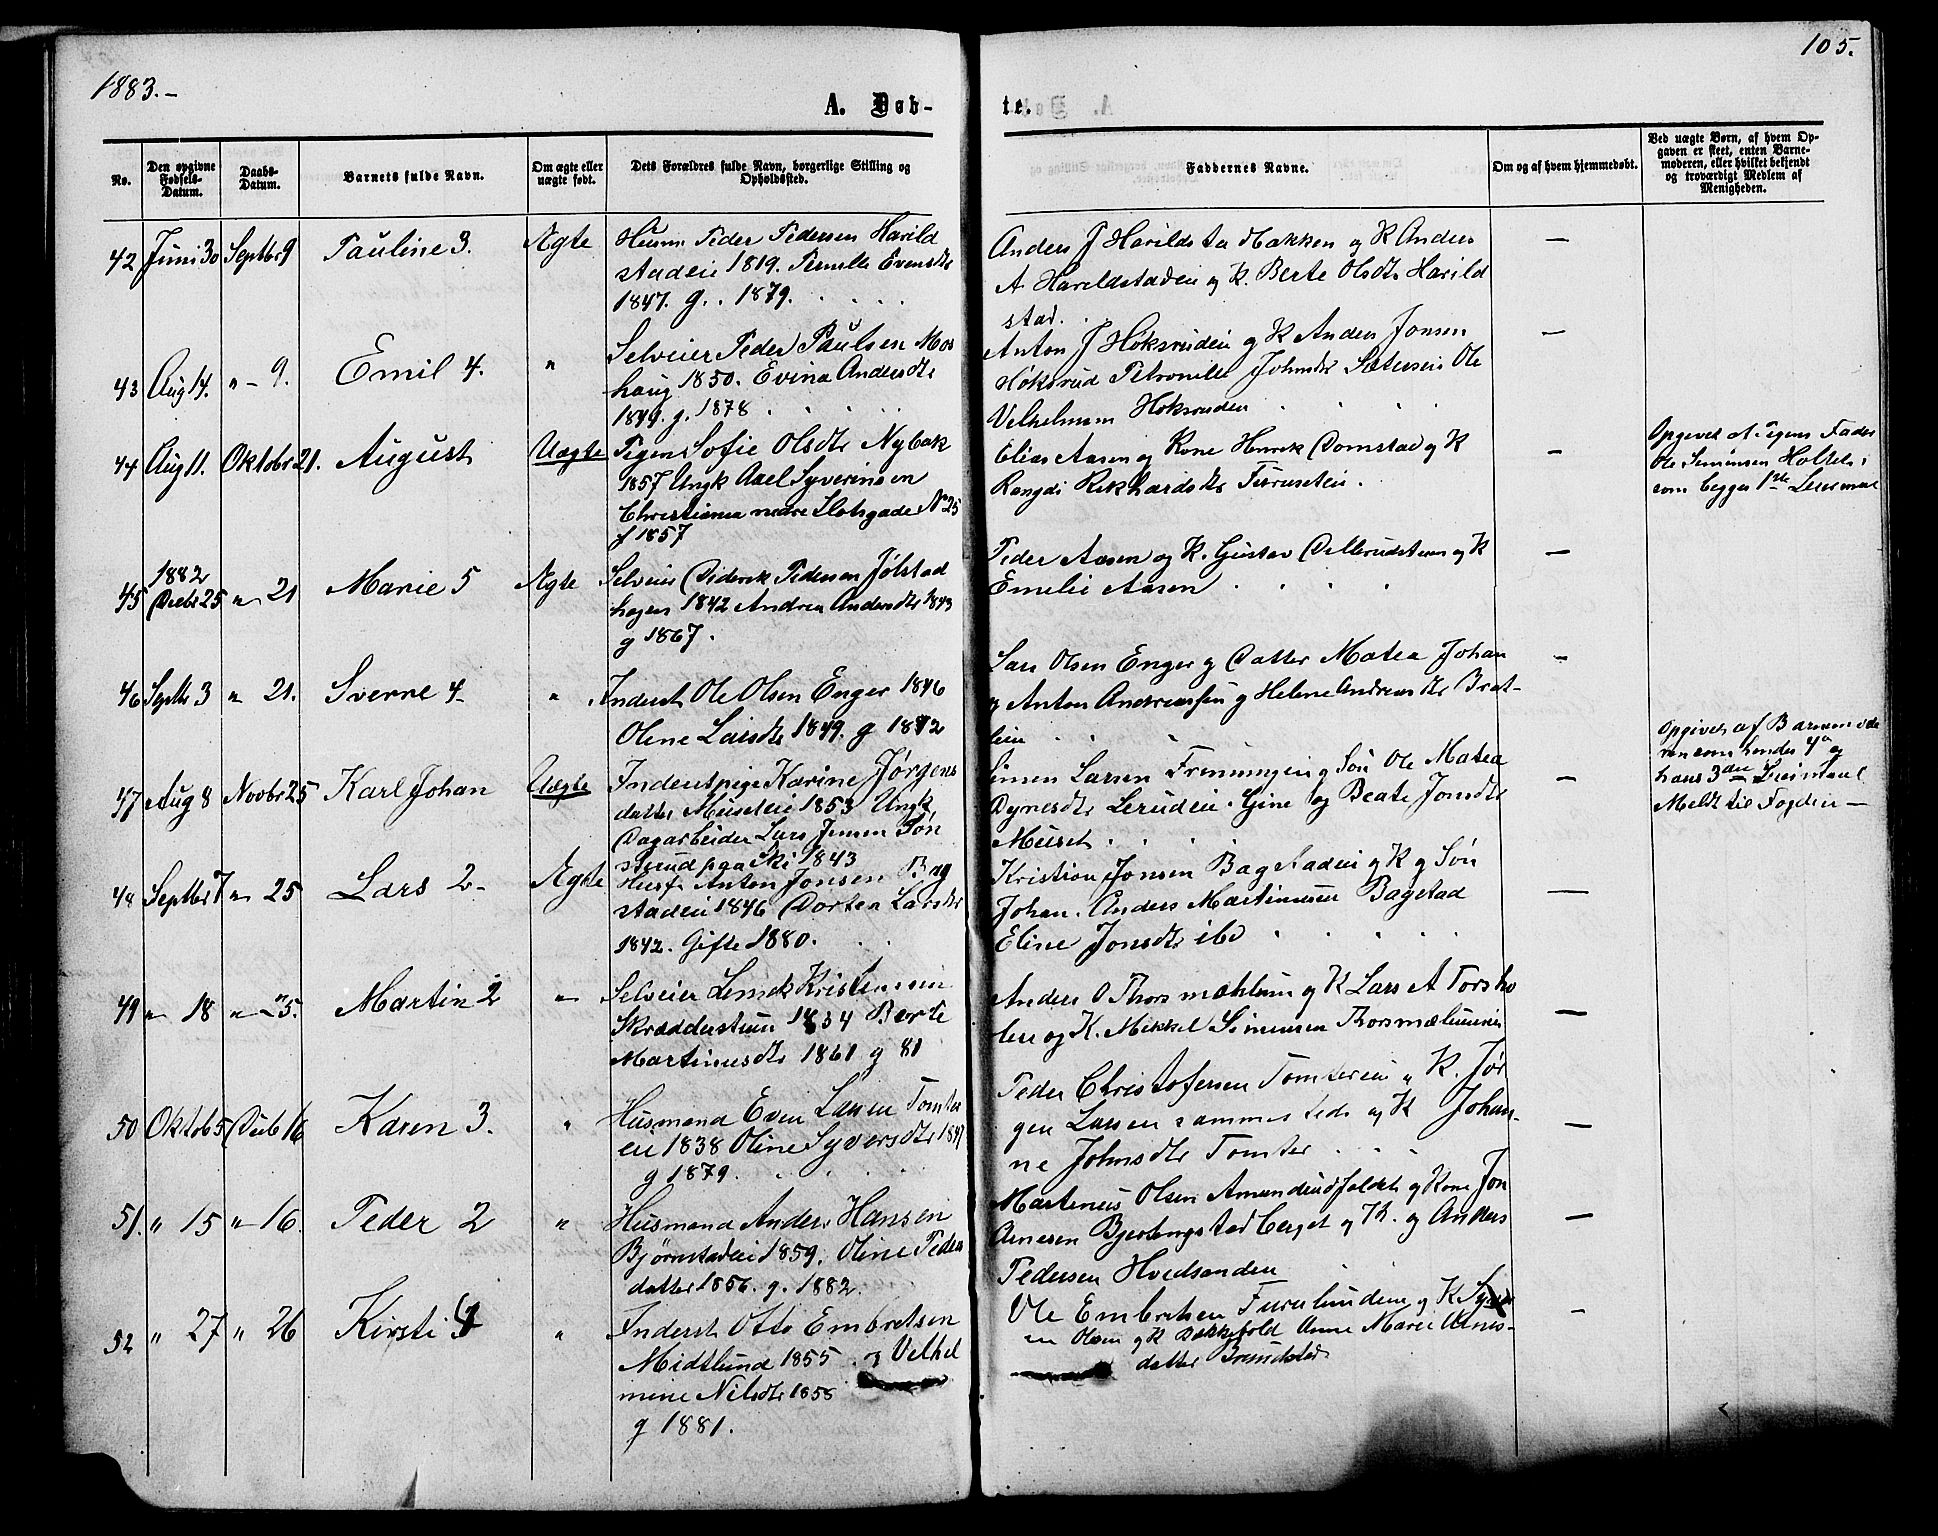 1883.-
105.
A. Døb-
te.
No.
Den opgivne Fødsels-Datum.
Daabs-Datum.
Barnets fulde Navn.
Om ægte eller uægte født.
Dets Forældres fulde Navn, borgerlige Stilling og Opholdssted.
Faddernes Navne.
Om og af hvem hjemmedøbt.
Ved uægte Børn, af hvem Op-
gaven er skeet, enten Barne-
moderen, eller hvilket bekjendt
og troværdigt Medlem af
Menigheden.
42 Juni 30 Septbr 9 Pauline 3. Ægte
Husm Peder Pedersen Harild
stadeie 1819. Pernille Evensdtr
1847. g. 1879.
Anders J Harildstad Bakken og K Anders
A Harildstadeie og K. Berte Olsdtr Harild
stad.
—
43 Aug 14. " - 9. Emil 4. "
Selveier Peder Paulsen Mos
haug 1850. Evina Andersdtr
1849. g. 1878
Anton J Høksrudeie og K Anders Jonsen
Høksrud Petronille Johnsdtr Ole
Høksrudeie
—
44 Aug 11. Oktobr 21. August Uægte
Pigen Sofie Olsdtr Nybak
1857 Ungk Axel Syverinsen
Christiania nedre Slotsgade No 25
f 1857
Elias Aasen og Kone Henrik Domstad og K
Rangdi Rikhardsdtr
—
Opgivet af Pigens Fader
Ole Simensen
som begges 1ste Leiermaal
45 1882 Decbr 25 " 21 Marie 5 Ægte
Selveier Diderik Pedersen Jølstad
hagen 1842 Andrea Andersdtr 1843
g 1867.
Peder Aasen og K. Gustav og K
Emelie Aasen
—
46 Septbr 3 " 21. Sverre 4- "
Inderst Ole Olsen Enger 1846
Oline Larsdtr 1849. g 1872
Lars Olsen Enger og Datter Matea Johan
og Anton Andreassen og Helene Andreasdtr Brat-
leie
—
47 Aug 8 Novbr 25 Karl Johan Uægte
Inderstpige Karine Jørgens
datter Museteie 1853 Ungk
Dagarbeider Lars Jensen Tøn
paa Ski 1843
Simen Larsen og Søn Ole Matea
Dynesdtr Lerudeie. Gine og Beate Jonsdtr
Muset
—
Opgivet af Barnemode
ren som hendes 4de og
hans 3die Leiermaal
Meldt til Fogden —
48 Septbr 7 " 25 Lars 2- Ægte
Husf. Anton Jonsen Bag
stadeie 1846 Dortea Larsdtr
1842. Gifte 1880.
Kristian Jonsen Bagstadeie og K og Søn
Johan. Anders Martinusen Bagstad
Eline Jonsdtr ibd
—
49 " 18 " 25. Martin 2 "
Selveier Kristiansen
Skrædderstuen 1834 Berte
Martinusdtr 1861 g 81
Anders O Thorsmæhlum og K Lars A
og K. Mikkel Simensen
—
50 Oktob 5 Decb 16 Karen 3. "
Husmand Even Larsen Tomter
eie 1838 Oline Syversdtr 1847
g 1879.
Peder Christofersen Tomtereie " K. Jør
gen Larsen sammesteds og K Johan-
ne Johnsdtr Tomter
—
51. " 15 " 16. Peder 2 "
Husmand Anders Hansen
Bjørnstadeie 1859. Oline Peders
datter 1856. g. 1882.
Martinus Olsen og Kone Jon
Arnesen og K. og Anders
Pedersen Hvidsanden
—
52 " 27 " 26 Kirsti "
Inderst Otto Embretsen
Midtlund 1855 og Vilhel
mine Nilsdtr 1858
g 1881.
Ole Embretsen Furulundeie og K
Olsen og K Anne Marie
datter
—